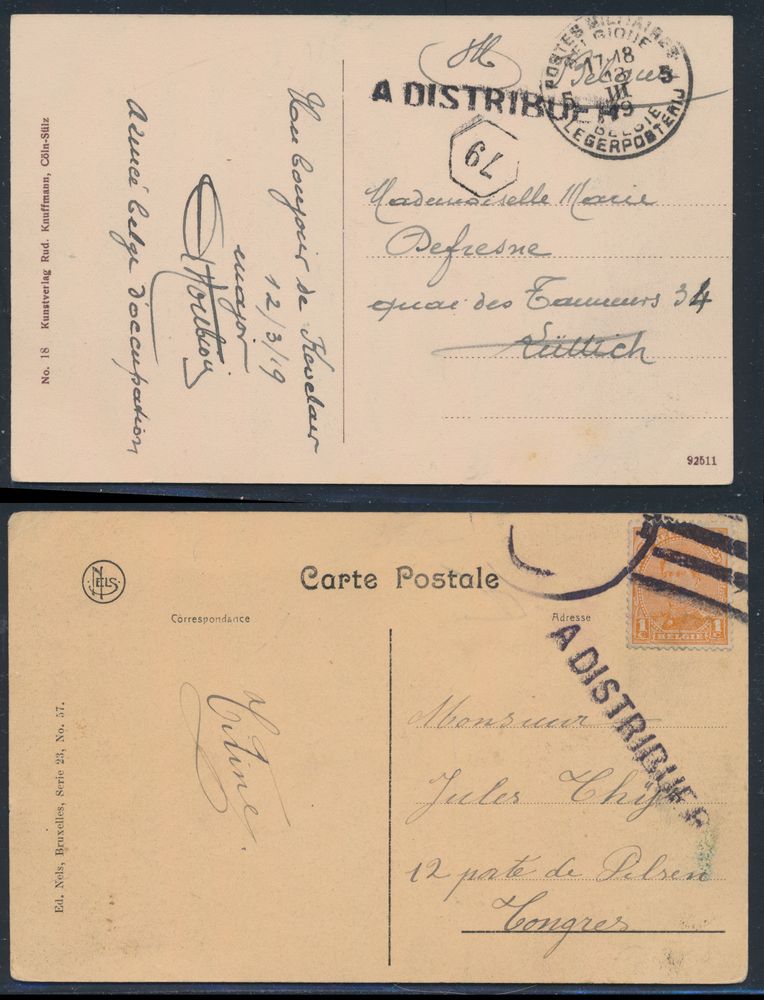 SM
Belgique
A DISTRIBUER
POSTES MILITAIRES
BELGIQUE
17-18
5 5
III
19
BELGIE
LEGERPOSTERIJ
79
Mademoiselle Marie
Defresne
quai des Tanneurs 34
Lüttich
92511
Un bonjour de Kevelaer
12/3/19
major
Armée belge d'occupation
No. 18 Kunstverlag Rud. Knuffmann, Cöln-Sülz
NELS
Carte Postale
Correspondance
Adresse
1 1
C C
BELGIE
A DISTRIBUER
Titine.
Monsieur
Jules Thys
12 porte de Pilsen
Tongres
Ed. Nels, Bruxelles, Serie 23, No. 57.